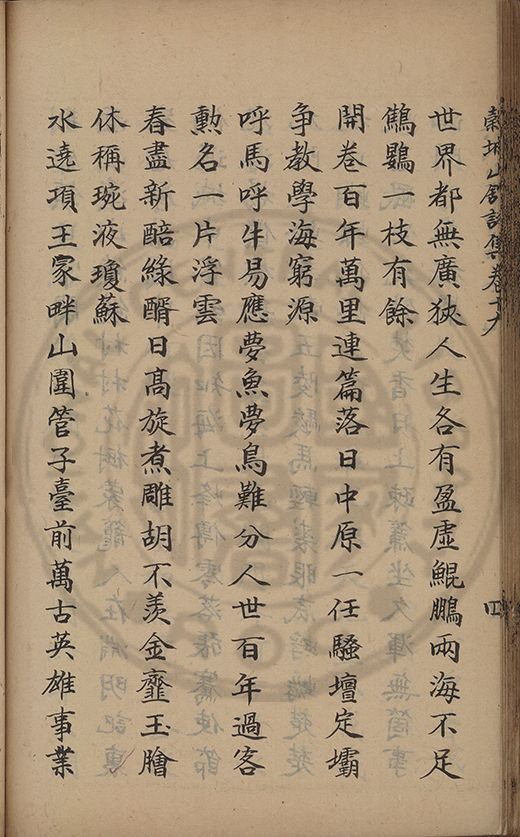 穀城山館詩集卷十六
四
世界都無廣狹人生各有盈虛鯤鵬兩海不足
鷦鷃一枝有餘
開卷百年萬里連篇落日中原一任騷壇定壩
争教學海窮源
呼馬呼牛易應夢魚夢鳥難分人世百年過客
勲名一片浮雲
春盡新醅綠醑日髙旋煮雕胡不羨金虀玉膾
休稱琬液瓊蘇
水遶項王冢畔山圍管子臺前萬古英雄事業